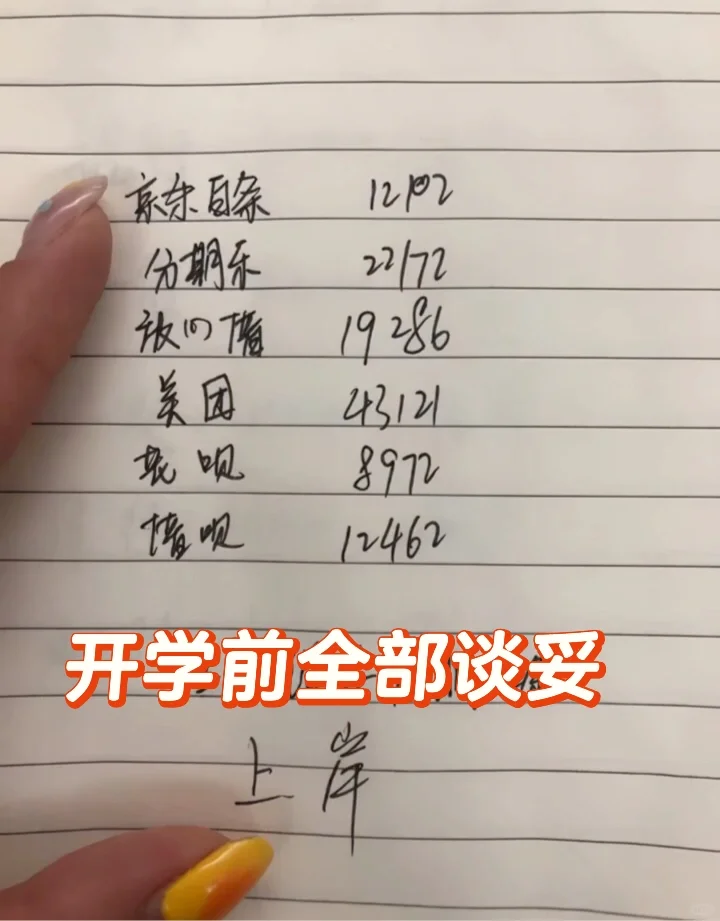 京东白条 12102
分期乐 22172
放心借 19286
美团 43121
花呗 8972
借呗 12462
开学前全部谈妥
上岸